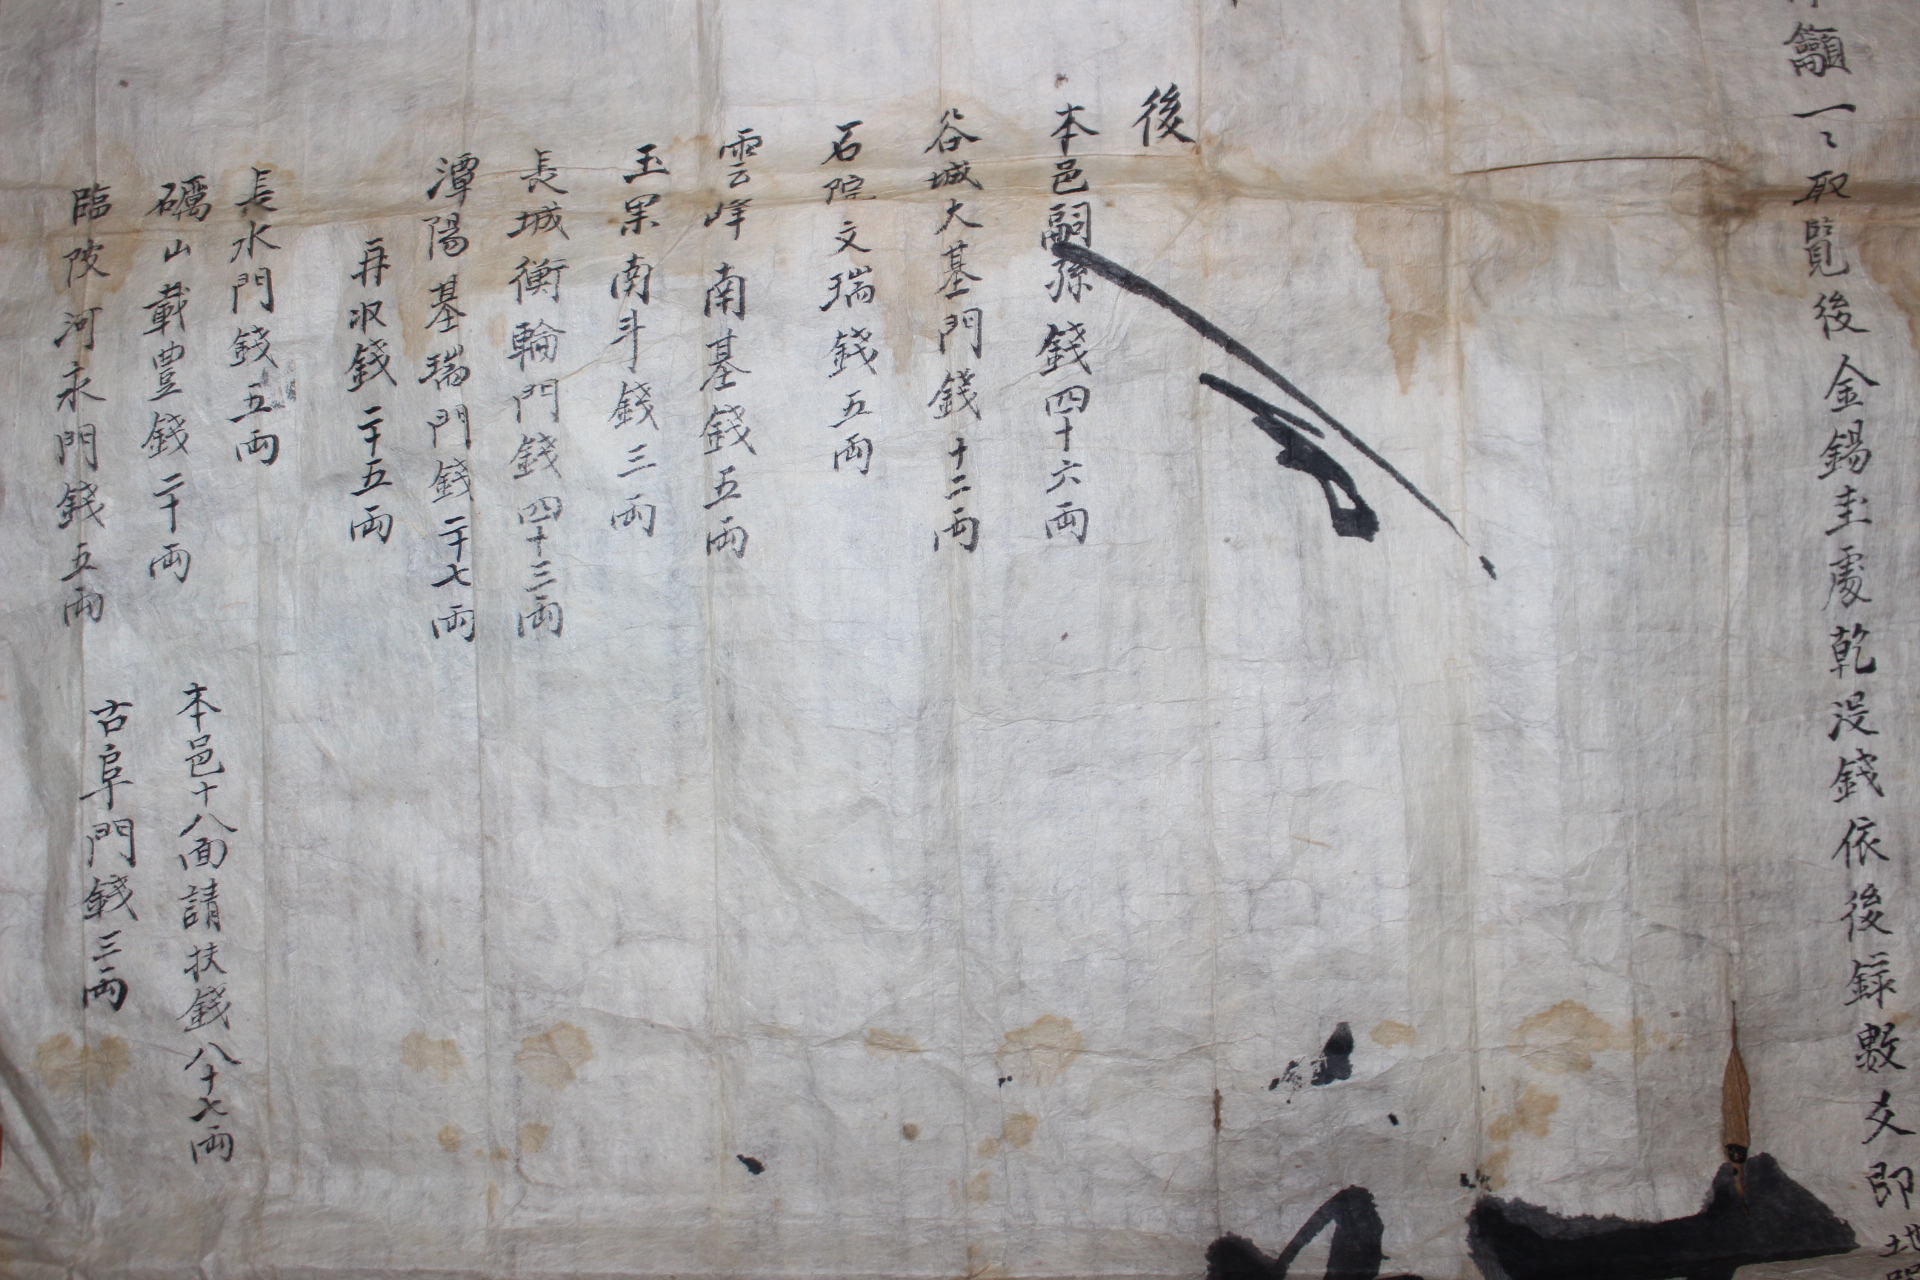 籲一〻取覽後金錫圭處乾没錢依後錄數爻即地
後
本邑嗣孫錢四十六両
谷城大基門錢十二両
石院文瑞錢五両
雲峰南基錢五両
玉果南斗錢三両
長城衡輪門錢四十三両
潭陽基瑞門錢二十七両
再収錢二十五両
長水門錢五両
礪山載豊錢二十両
本邑十八面請扶錢八十七両
臨陂河永門錢五両
古阜門錢三両